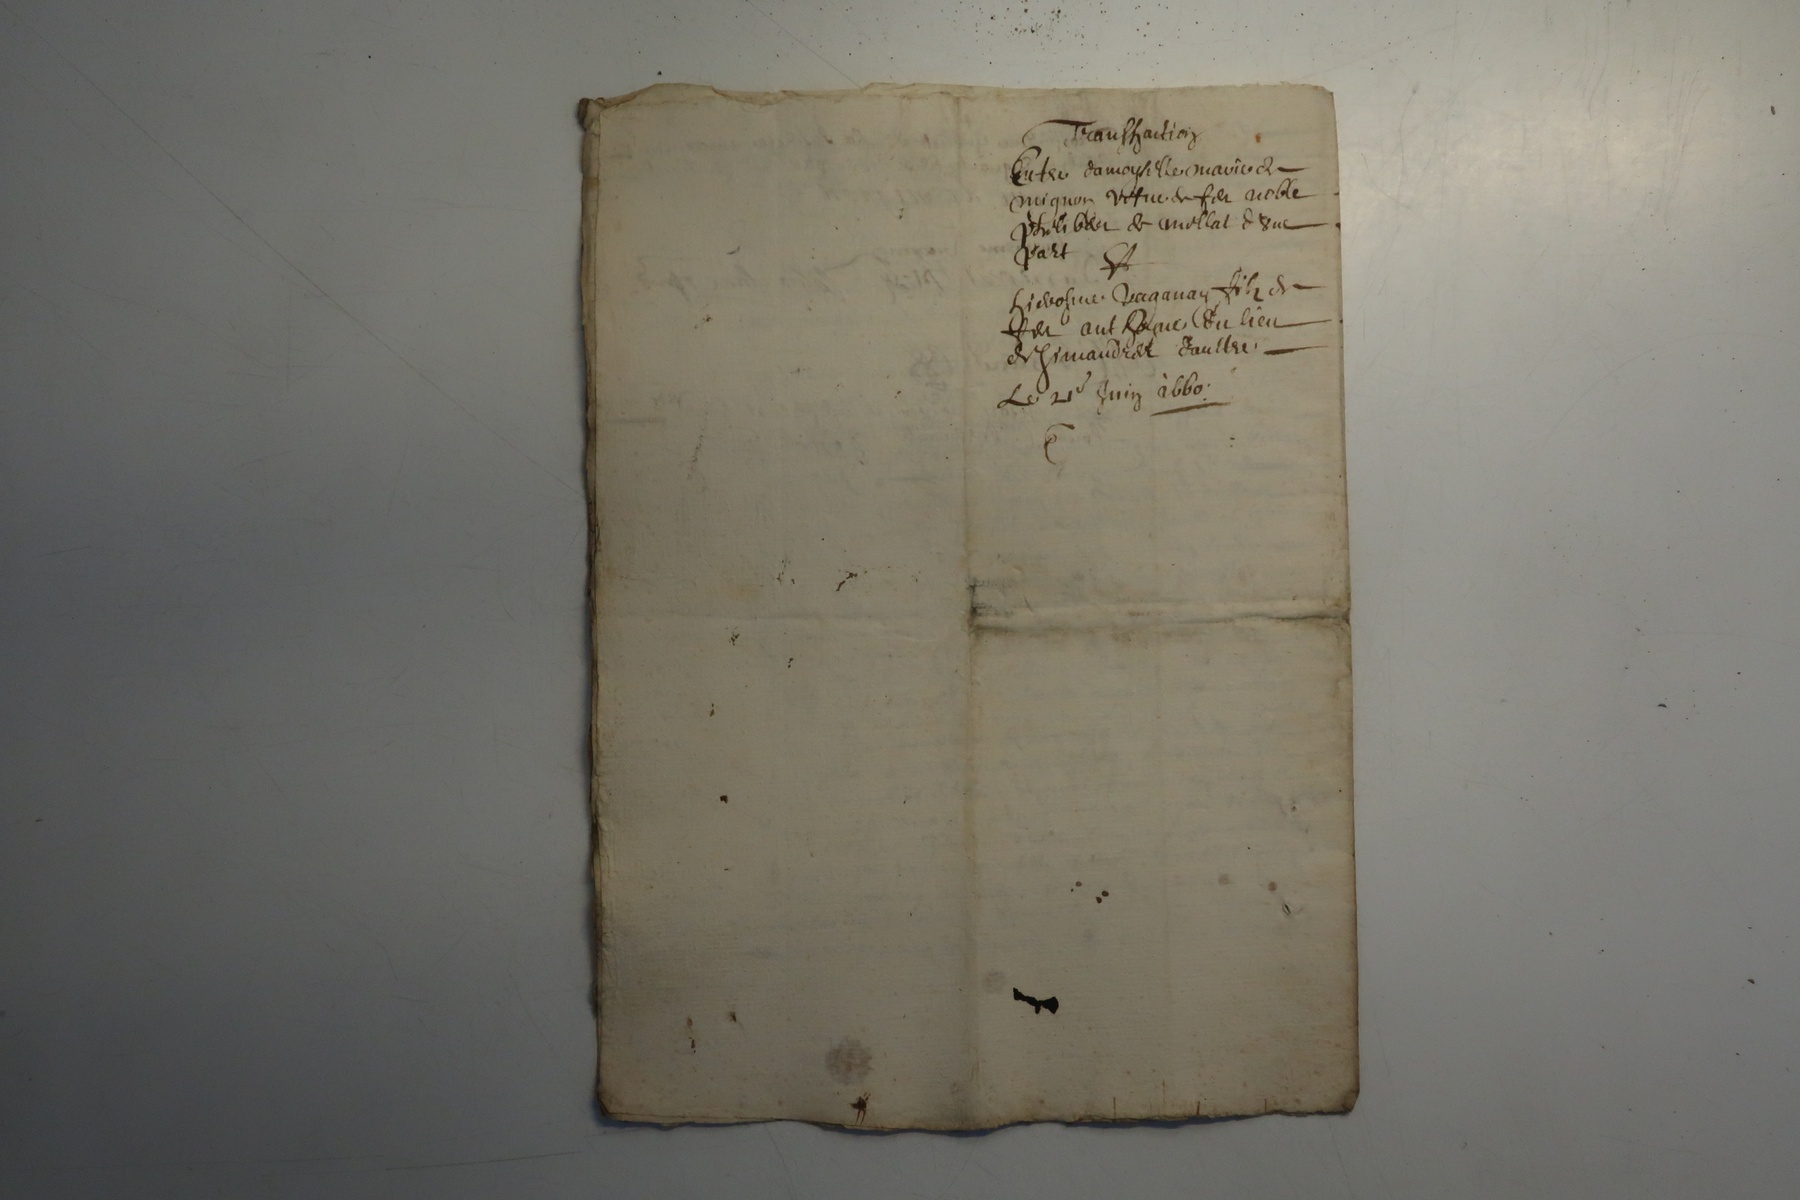 Transhaction
Entre damoyselle marie de
mignot vefve de feu noble
philiber de mollat d'une
part Et
hierosme paganay filz de
feu anthoyne du lieu
de d'aultre
Le 21e Juing 1660.